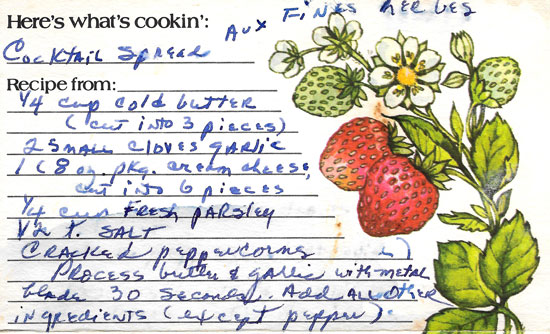 Here's what's cookin': Aux Fines Herbes
Cocktail Spread
Recipe from:
1/4 cup cold butter
(cut into 3 pieces)
2 small cloves garlic
1 (8 oz. pkg. cream cheese,
cut into 6 pieces
1/4 cup FRESH PARSLEY
1/2 t. SALT
CRACKED peppercorns
Process butter & garlic with metal
blade 30 seconds. Add ALL other
ingredients (except pepper).